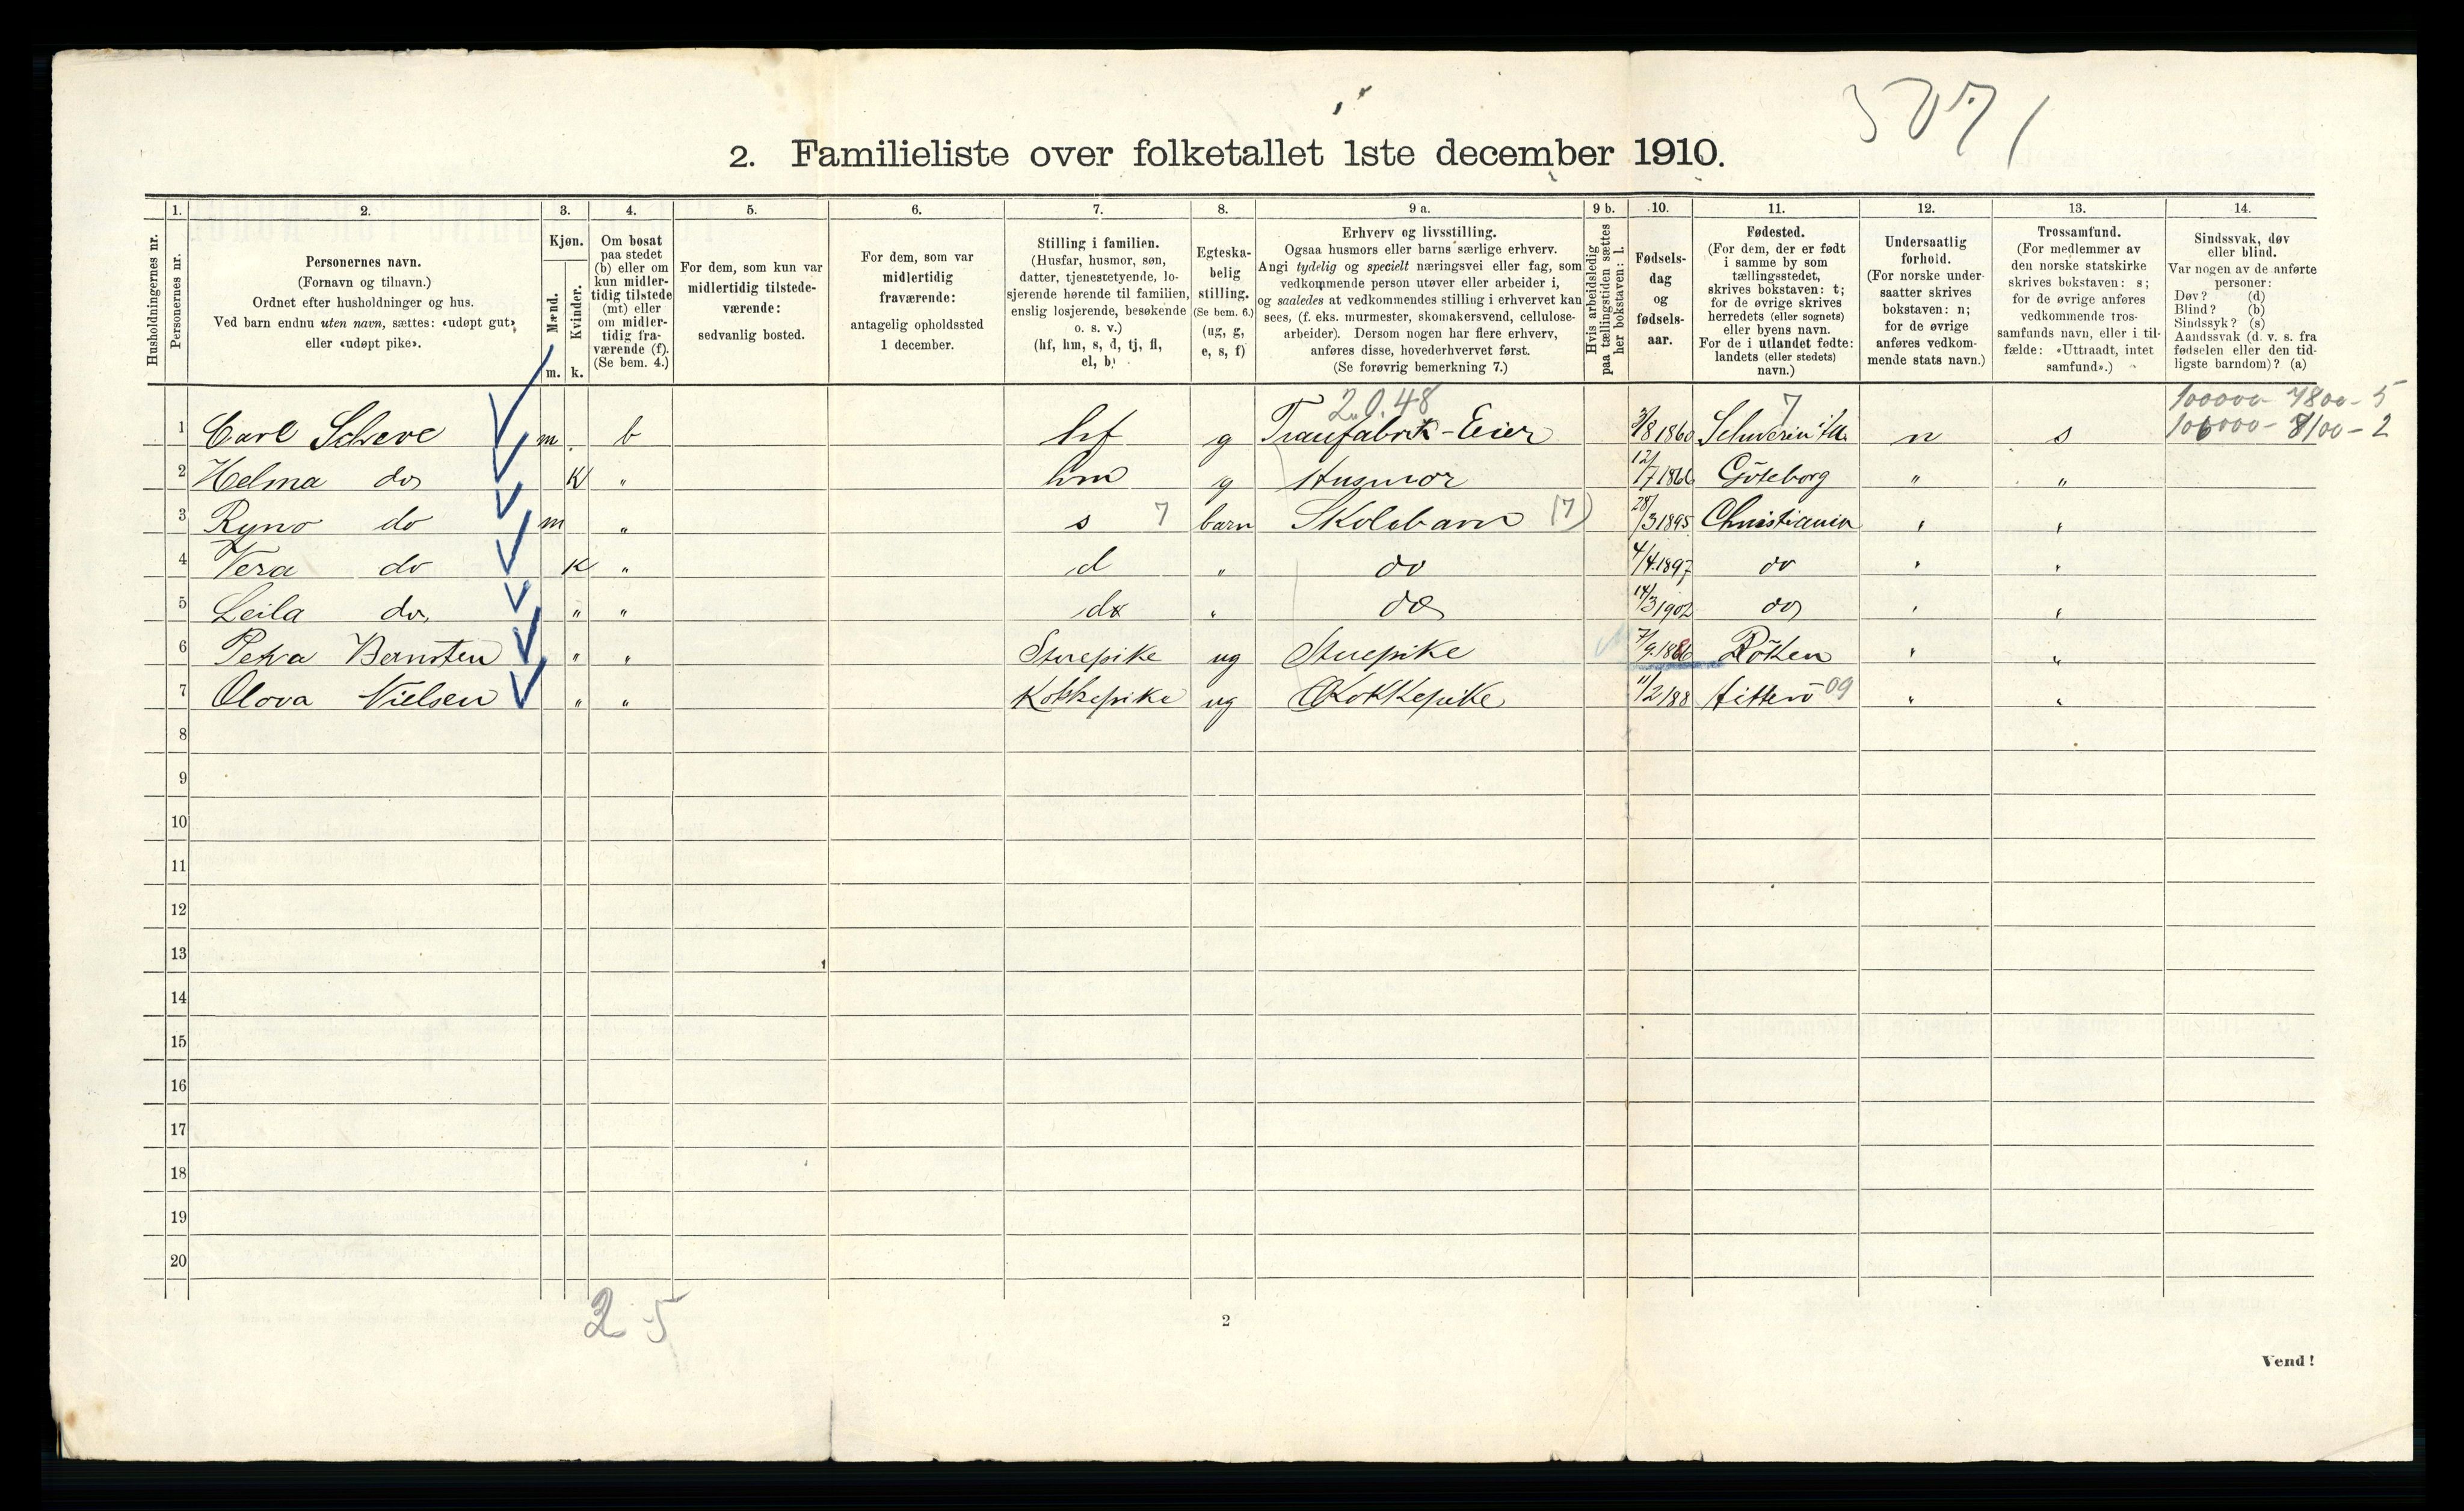 5071
2. Familieliste over folketallet 1ste december 1910.
1. 2. 3. 4. 5. 6. 7. 8. 9 a. 9 b. 10. 11. 12. 13. 14.
Husholdningernes nr.
Personernes nr.
Personernes navn.
(Fornavn og tilnavn.)
Ordnet efter husholdninger og hus.
Ved barn endnu uten navn, sættes: «udøpt gut»
eller «udøpt pike».
Kjøn.
Mænd.
Kvinder.
m. k.
Om bosat
paa stedet
(b) eller om
kun midler-
tidig tilstede
(mt) eller
om midler-
tidig fra-
værende (f).
(Se bem. 4.)
For dem, som kun var
midlertidig tilstede-
værende:
sedvanlig bosted.
For dem, som var
midlertidig
fraværende:
antagelig opholdssted
1 december.
Stilling i familien.
(Husfar, husmor, søn,
datter, tjenestetyende, lo-
sjerende hørende til familien,
enslig losjerende, besøkende
o. s. v.)
(hf, hm, s, d, tj, fl,
el, b)
Egteska-
belig
stilling.
(Se bem. 6.)
(ug, g,
e, s, f)
Erhverv og livsstilling.
Ogsaa husmors eller barns særlige erhverv.
Angi tydelig og specielt næringsvei eller fag, som
vedkommende person utøver eller arbeider i,
og saaledes at vedkommendes stilling i erhvervet kan
sees, (f. eks. murmester, skomakersvend, cellulose-
arbeider). Dersom nogen har flere erhverv,
anføres disse, hovederhvervet først.
(Se forøvrig bemerkning 7.)
Hvis arbeidsledig
paa tællingstiden sættes
her bokstaven: l.
Fødsels-
dag
og
fødsels-
aar.
Fødested.
(For dem, der er født
i samme by som
tællingsstedet,
skrives bokstaven: t;
for de øvrige skrives
herredets (eller sognets)
eller byens navn.
For de i utlandet fødte:
landets (eller stedets)
navn.)
Undersaatlig
forhold.
(For norske under-
saatter skrives
bokstaven: n;
for de øvrige
anføres vedkom-
mende stats navn.)
Trossamfund.
(For medlemmer av
den norske statskirke
skrives bokstaven: s;
for de øvrige anføres
vedkommende tros-
samfunds navn, eller i til-
fælde: «Uttraadt, intet
samfund».)
Sindssvak, døv
eller blind.
Var nogen av de anførte
personer:
Døv? (d)
Blind? (b)
Sindssyk? (s)
Aandssvak (d. v. s. fra
fødselen eller den tid-
ligste barndom)? (a)
2.0.48 7 100000 - 7800 - 5
1 Carl Scheve m b hf g Tranfabrik-Eier 3/8 1860 Schwerin n s 100000 - 8100 - 2
2 Helma do K " hm g Husmor 12/7 1866 Göteborg " "
3 Ryno do m " s 7 barn Skolebarn (7) 28/3 1895 Christiania " "
4 Vera do K " d " do 4/4 1897 do " "
5 Leila do " " d " do 14/3 1902 do " "
6 Petra Bernsten " " Stuepike ug Stuepike 7/9 1886 Röken " "
7 Olova Nielsen " " Kokkepike ug Kokkepike 11/2 188 Hitterö 09 " "
8
9
10
11
12
13
14
15
16
17
18
19
20
2 5
2
Vend!